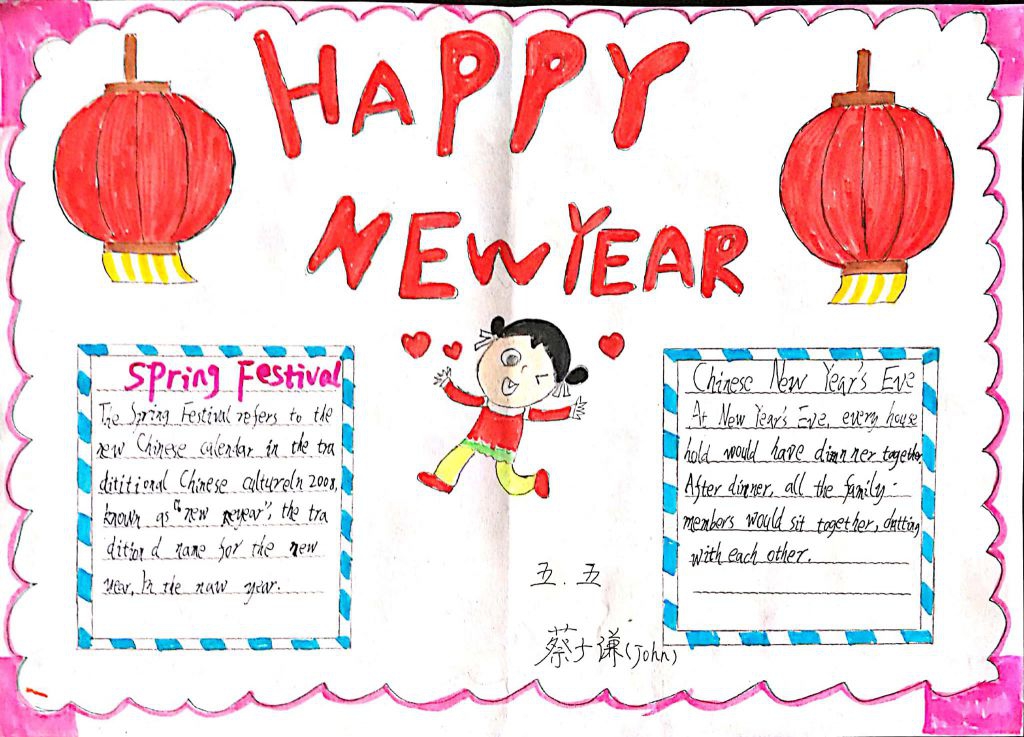 HAPPY
NEW YEAR
Spring Festival
The Spring Festival refers to the
new Chinese calendar in the tra
dititional Chinese cultureIn 2008,
known as "new reyear", the tra
dition d name for the new
year, In the naw year.
Chinese New Year's Eve
At New Year's Eve, every house
hold would have dimnner together
After dinner, all the family-
members would sit together, chatting
with each other.
五.五
蔡子谦(John)